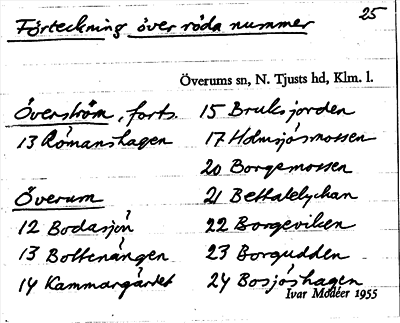 Förteckning över röda nummer 25
Överums sn, N. Tjusts hd, Klm. l.
Överström, forts.
13 Romanshagen
Överum
12 Bodasjön
13 Boltenängen
14 Kammargärdet
15 Bruksjorden
17 Holmsjösmossen
20 Borgemossen
21 Bettatelyckan
22 Borgeviken
23 Borgudden
24 Bosjöshagen
Ivar Modéer 1955